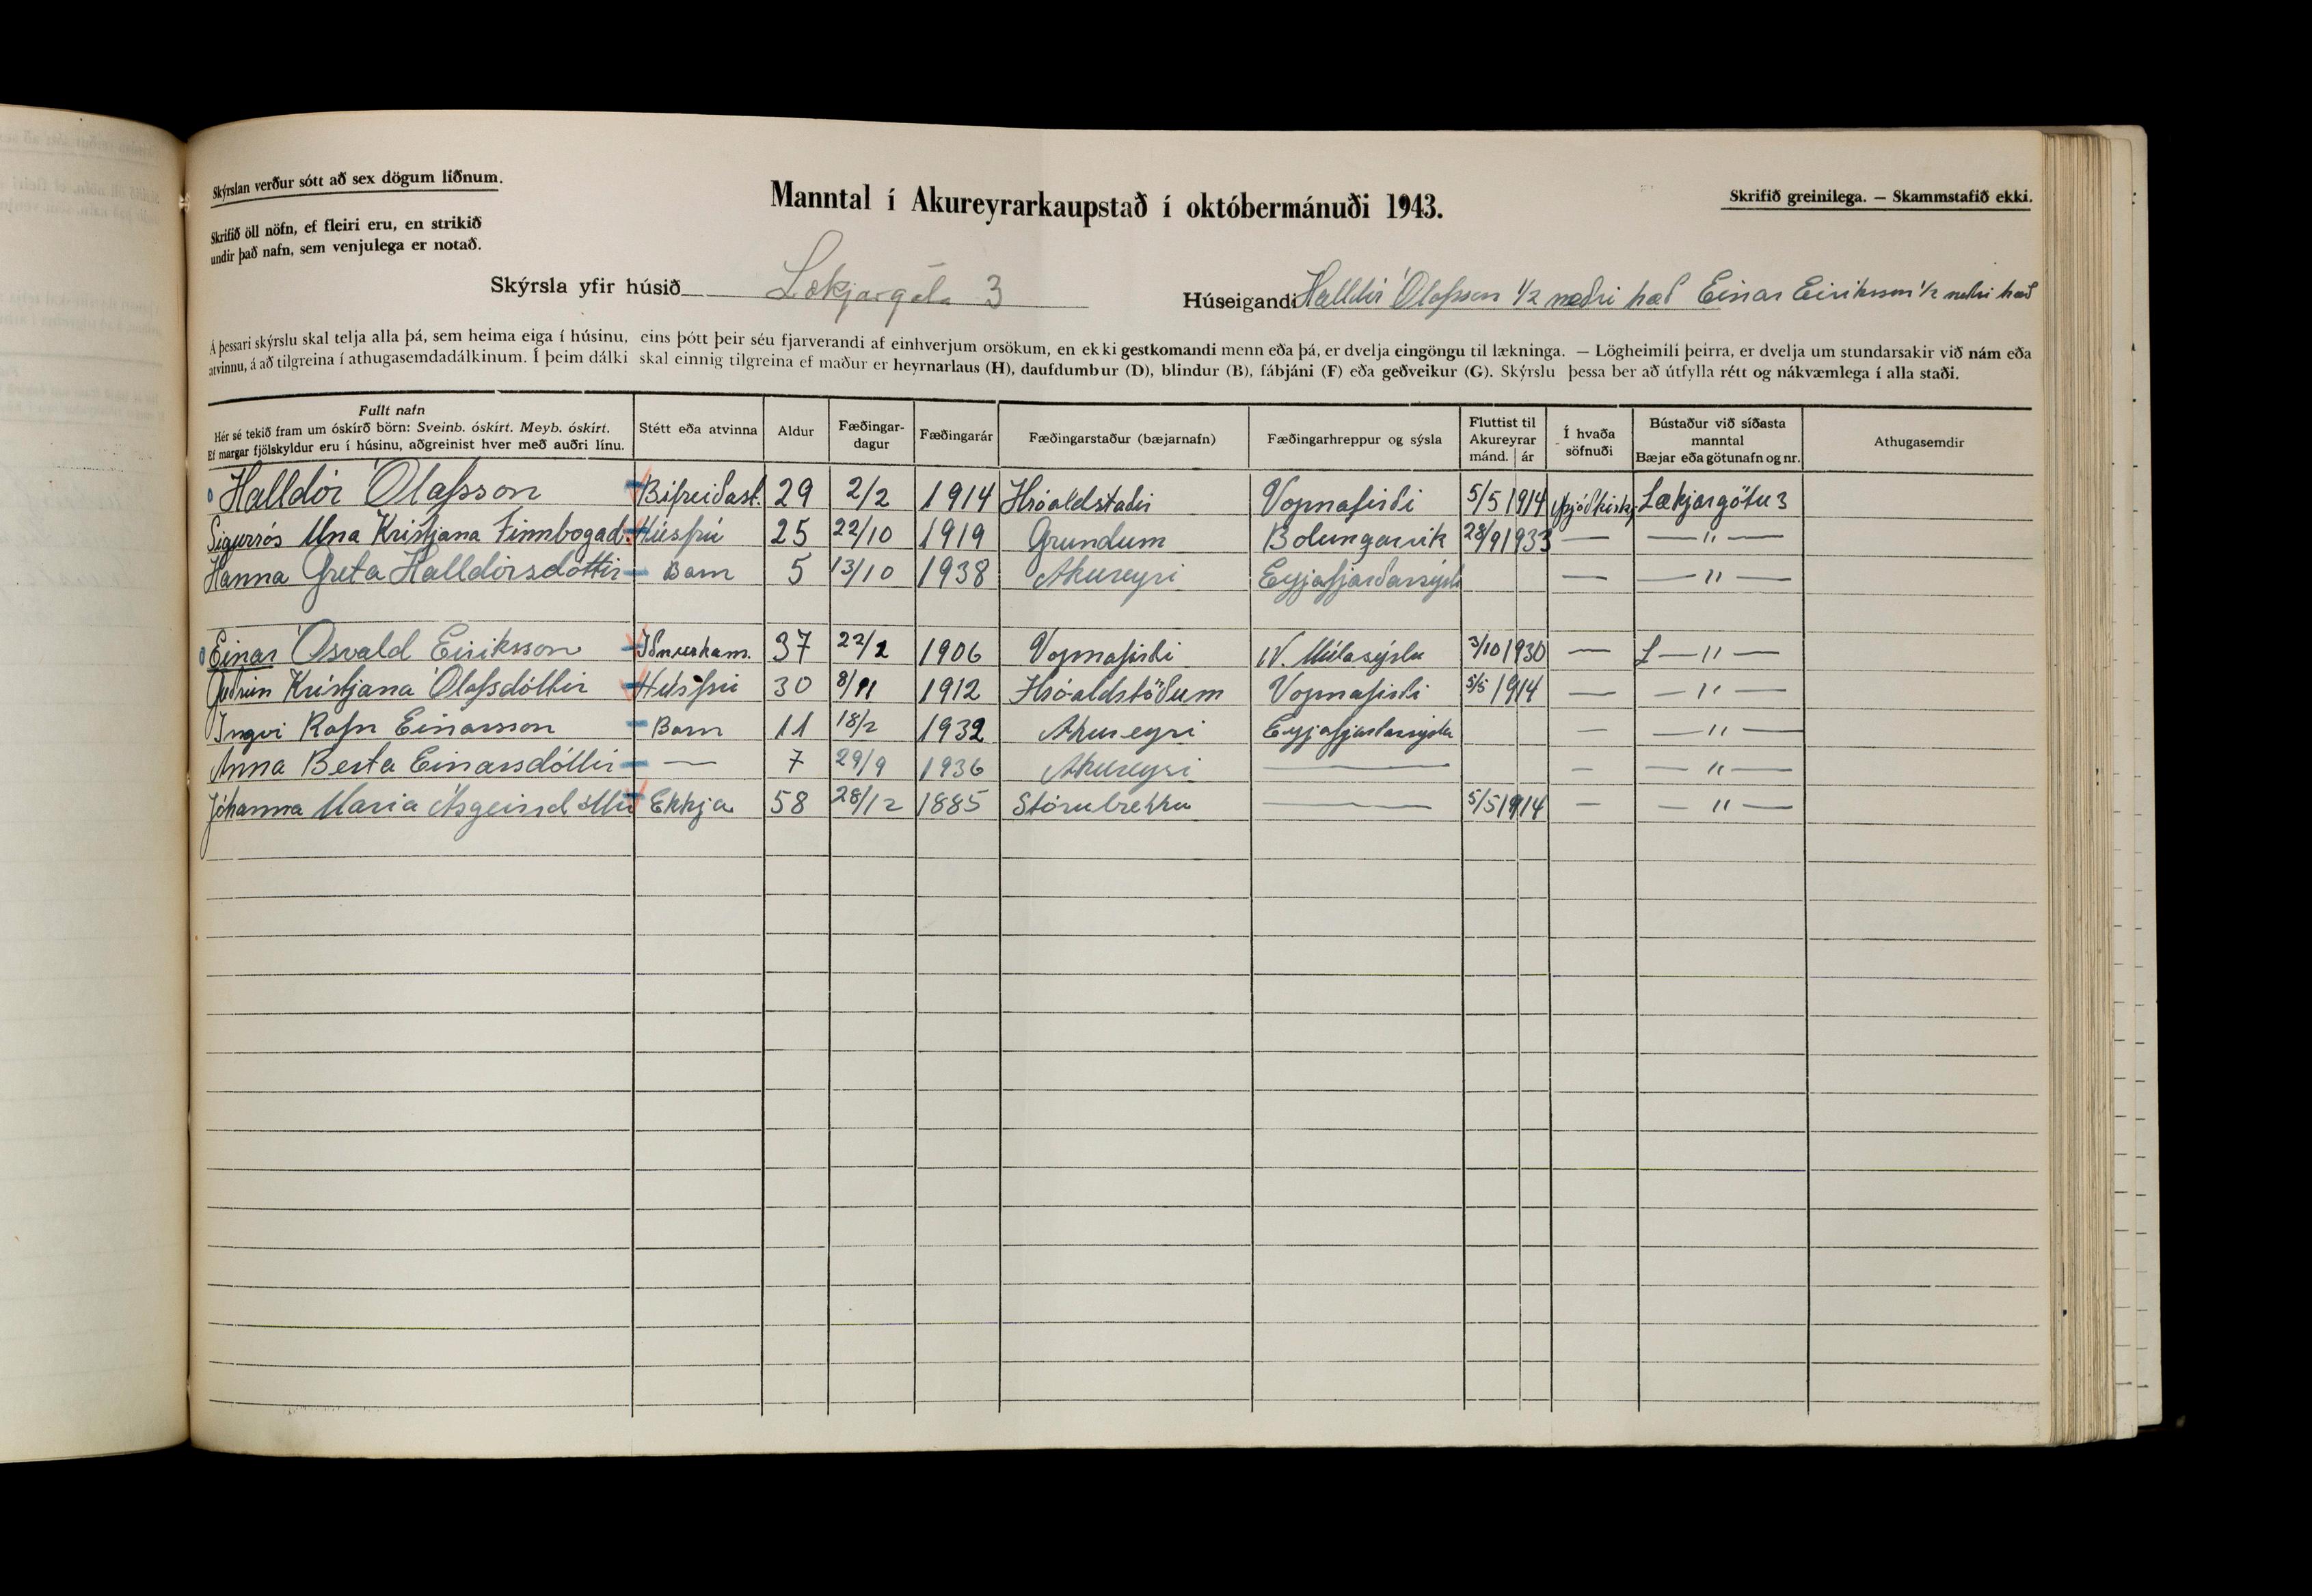 Skýrslan verður sótt að sex dögum liðnum.
Manntal í Akureyrarkaupstað í októbermánuði 1943.
Skrifið greinilega. — Skammstafið ekki.
Skrifið öll nöfn, ef fleiri eru, en strikið
undir það nafn, sem venjulega er notað.
Skýrsla yfir húsið Lækjargata 3
Húseigandi Halldór Ólafsson 1/2 neðri hæð Einar Eiriksson 1/2 neðri hæð
Á þessari skýrslu skal telja alla þá, sem heima eiga í húsinu, eins þótt þeir séu fjarverandi af einhverjum orsökum, en ekki gestkomandi menn eða þá, er dvelja eingöngu til lækninga. — Lögheimili þeirra, er dvelja um stundarsakir við nám eða
atvinnu, á að tilgreina í athugasemdadálkinum. Í þeim dálki skal einnig tilgreina ef maður er heyrnarlaus (H), daufdumbur (D), blindur (B), fábjáni (F) eða geðveikur (G). Skýrslu þessa ber að útfylla rétt og nákvæmlega í alla staði.
Fullt nafn
Hér sé tekið fram um óskírð börn: Sveinb. óskírt. Meyb. óskírt.
Ef margar fjölskyldur eru í húsinu, aðgreinist hver með auðri línu.
Stétt eða atvinna
Aldur
Fæðingar-
dagur
Fæðingarár
Fæðingarstaður (bæjarnafn)
Fæðingarhreppur og sýsla
Fluttist til
Akureyrar
mánd. ár
Í hvaða
söfnuði
Bústaður við síðasta
manntal
Bæjar eða götunafn og nr.
Athugasemdir
Halldór Ólafsson Bifreiðast. 29 2/2 1914 Hróaldstaðir Vopnafirði 5/5 1914 Þjóðkirkj Lækjargötu 3
Sigurrós Una Kristjana Finnbogad. Húsfrú 25 22/10 1919 Grundum Bolungarvik 28/9 1933 — — " —
Hanna Greta Halldórsdóttir Barn 5 13/10 1938 Akureyri Eyjafjarðarsýslu — — " —
Einar Ósvald Eiriksson Iðnverkam. 37 22/2 1906 Vopnafirði N. Múlasýslu 3/10 1930 — L — " —
Guðrún Kristjana Ólafsdóttir Húsfrú 30 8/11 1912 Hróaldstöðum Vopnafirði 5/5 1914 — — " —
Ingvi Rafn Einarsson Barn 11 18/2 1932 Akureyri Eyjafjarðarsýslu — — " —
Anna Berta Einarsdóttir — 7 29/9 1936 Akureyri — — — " —
Jóhanna Maria Ásgeirsdóttir Ekkja 58 28/12 1885 Stórubrekku — 5/5 1914 — — " —